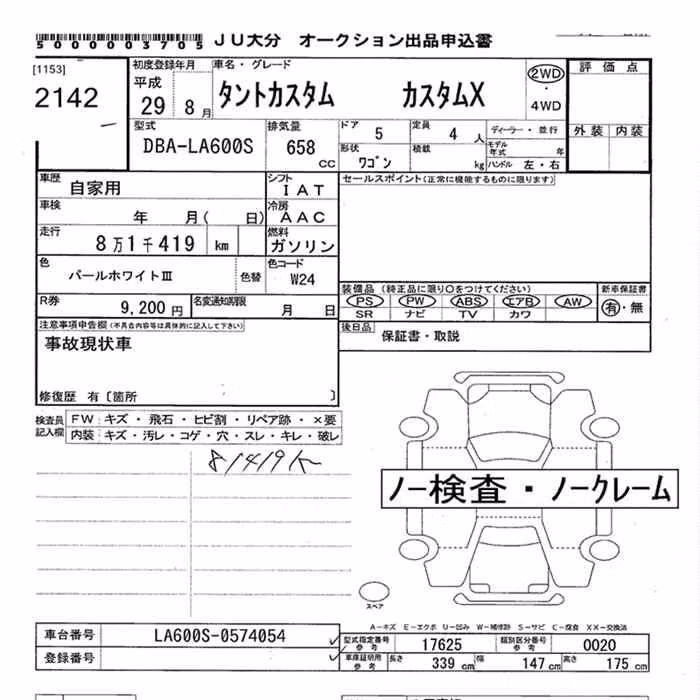 5000003705 JU大分 オークション出品申込書
[1153] 2142
初度登録年月 平成 29 8月
車名・グレード タントカスタム カスタムX
2WD ・ 4WD
評価点
外装 内装
型式 DBA-LA600S
排気量 658 cc
ドア 5 定員 4人
形状 ワゴン 積載 kg
ディーラー・並行
モデル年式 年
ハンドル 左・右
車歴 自家用
シフト IAT
セールスポイント(正常に機能するものに限ります)
車検 年 月( 日)
冷房 AAC
走行 8万1千419 km
燃料 ガソリン
色 パールホワイトIII 色替
色コード W24
装備品 (純正品に限り○をつけてください)
新車保証書
PS PW ABS エアB AW
有・無
SR ナビ TV カワ
R券 9,200円
名変通知期限 月 日
後日品 保証書・取説
注意事項申告欄(不具合内容等は具体的に記入して下さい)
事故現状車
修復歴 有〔箇所 〕
検査員記入欄
FW キズ・飛石・ヒビ割・リペア跡・×要
内装 キズ・汚レ・コゲ・穴・スレ・キレ・破レ
81419K
ノー検査・ノークレーム
スペア
A-キズ E-エクボ U-凹み W-補修跡 S-サビ C-腐食 XX-交換済
車台番号 LA600S-0574054
登録番号
型式指定番号 参考 17625
類別区分番号 参考 0020
車庫証明用 参考 長さ 339 cm 幅 147 cm 高さ 175 cm